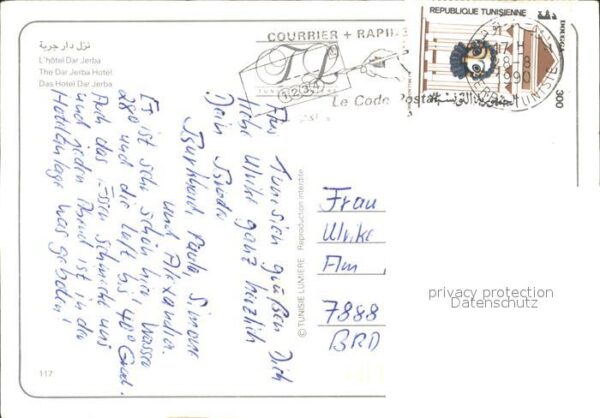 نزل دار جربة
L'hôtel Dar Jerba
The Dar Jerba Hotel
Das Hotel Dar Jerba
COURRIER + RAPIDE
1 2 3 4
Le Code Postal
REPUBLIQUE TUNISIENNE
300
17H
8-8
1990
TUNISIE
Aus Tunesien grüßen Dich
liebe Ulrike ganz herzlich
Dein Bruder
Burkhard, Paula, Simone
und Alexander.
Es ist sehr schön hier, Wasser
28° und die Luft bis 40° Grad.
Auch das Essen schmeckt uns
und jeden Abend ist in der
Hotelanlage was geboten!
© TUNISIE LUMIERE Reproduction interdite
Frau
Ulrike
Am
7888
BRD
privacy protection
Datenschutz
117